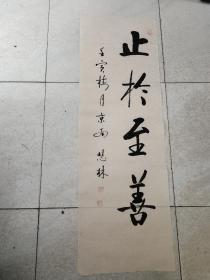 止於至善
壬寅梅月京南慧林